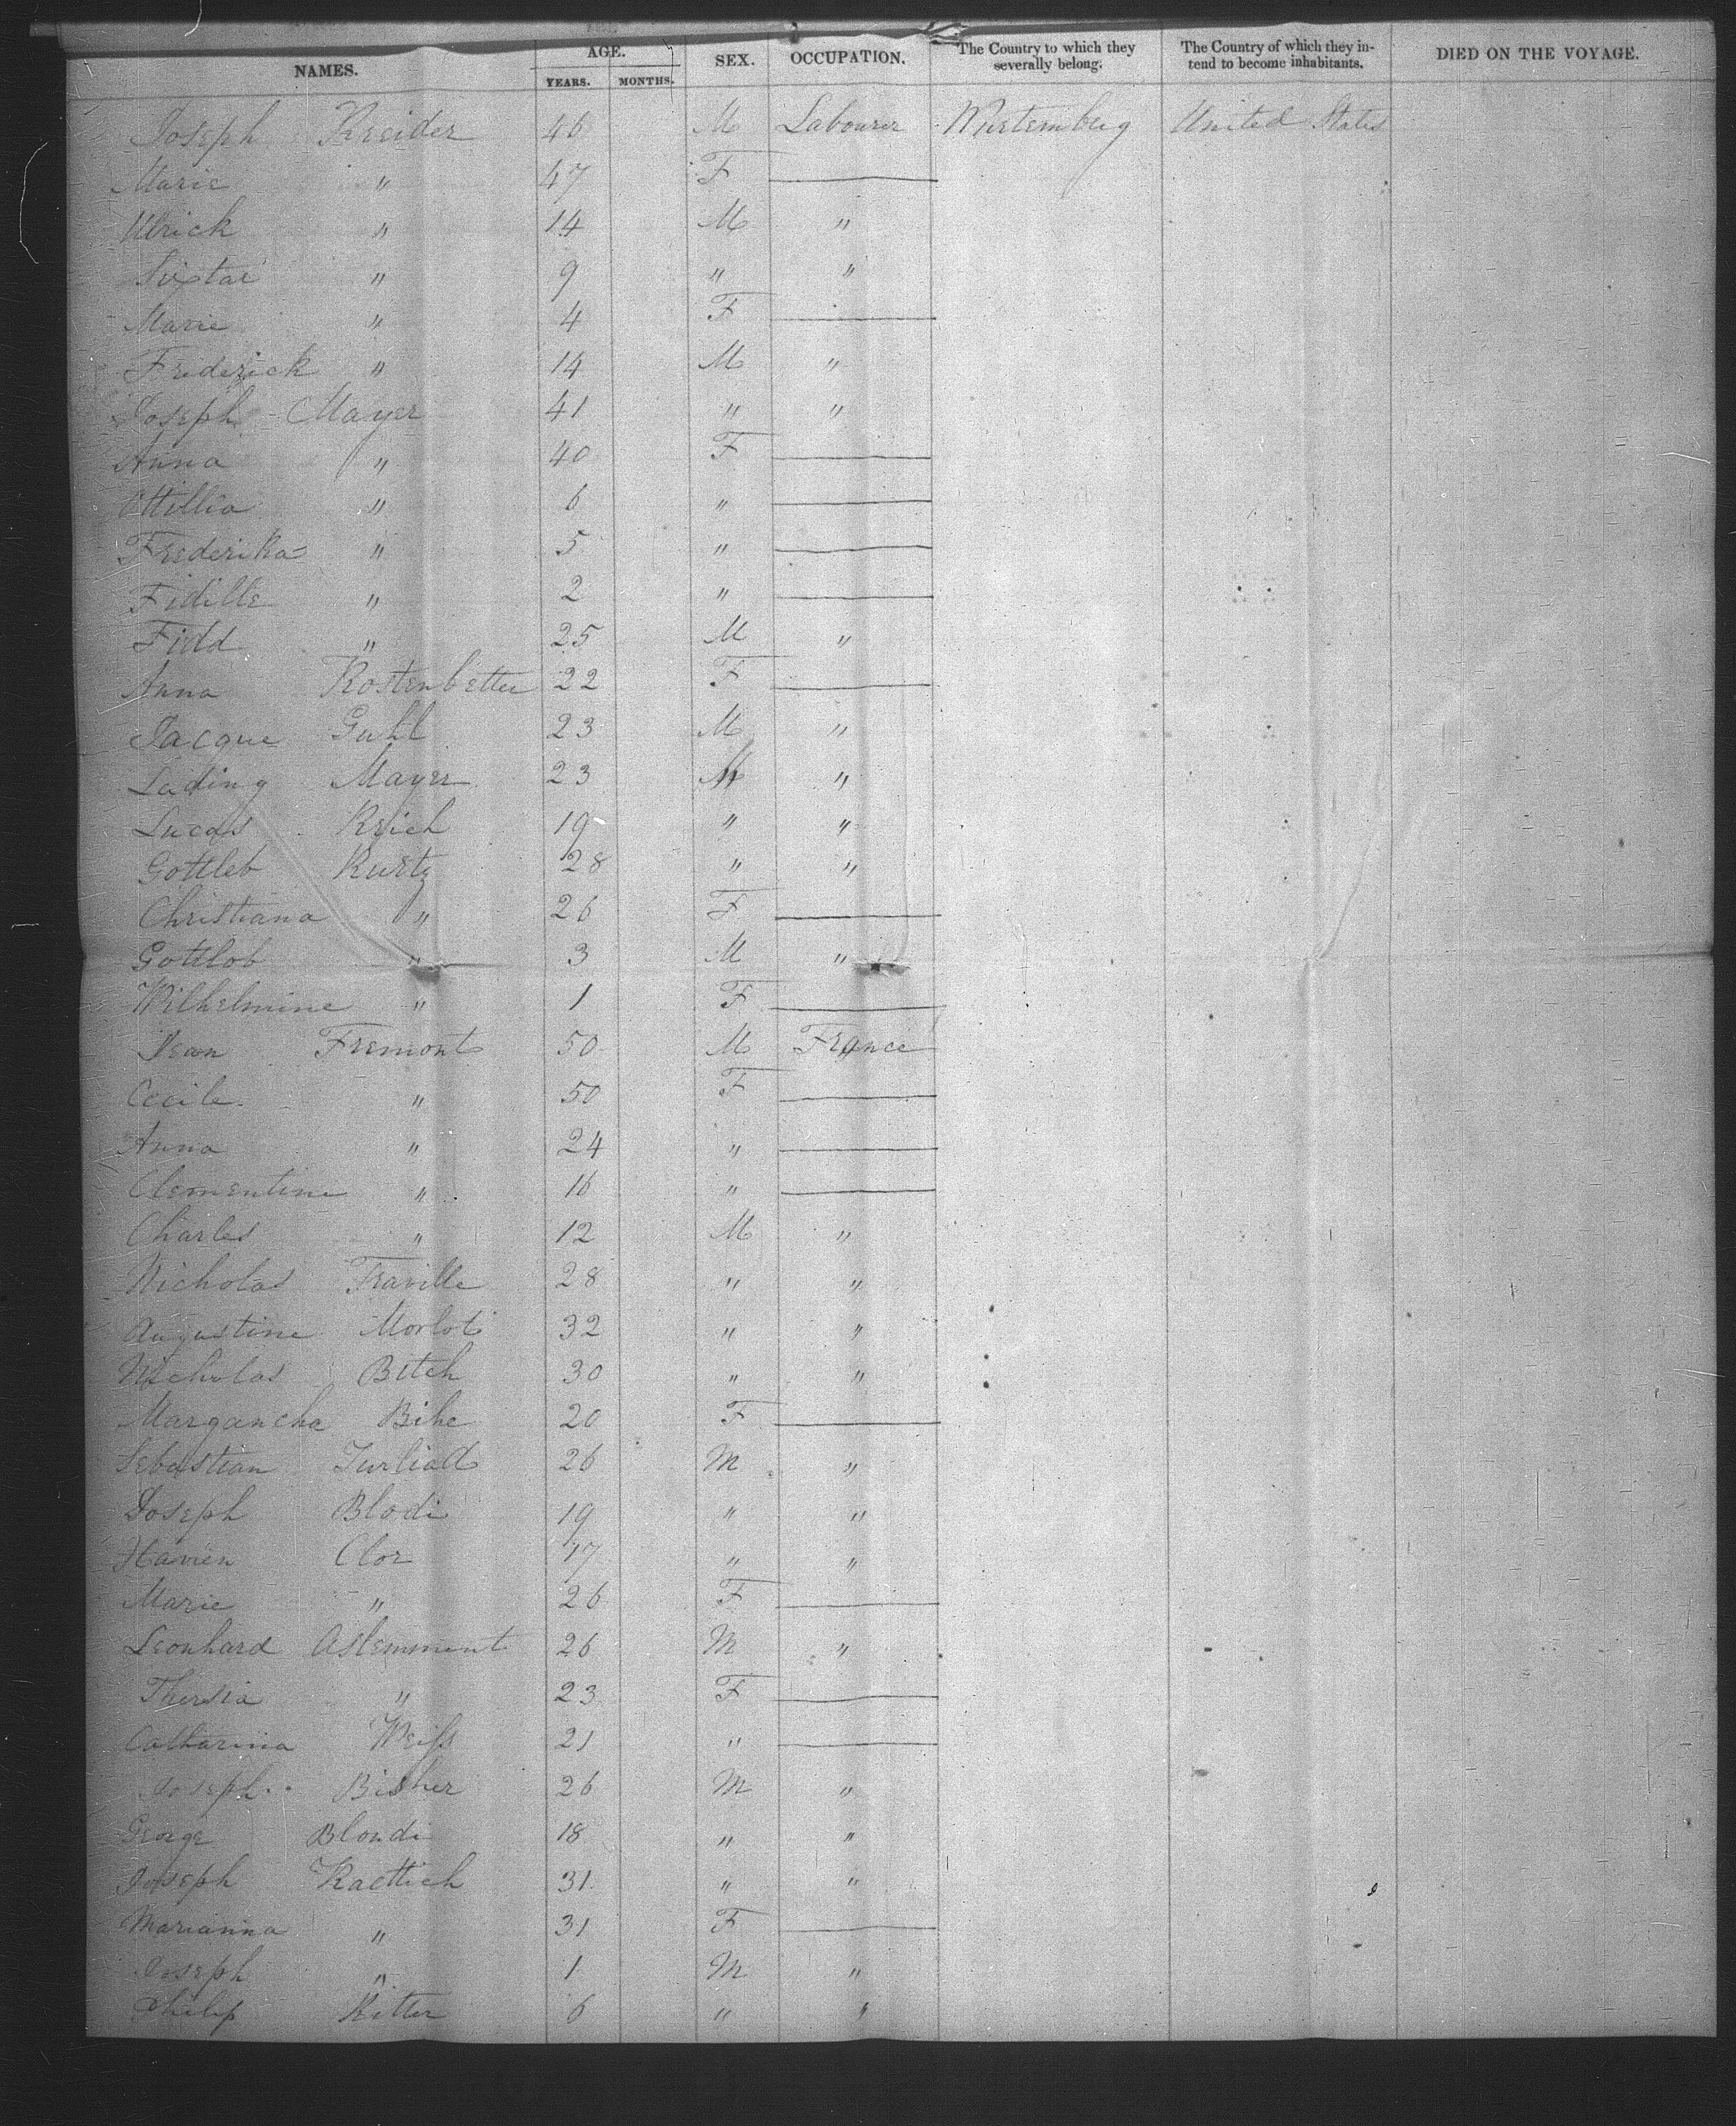 NAMES. AGE. YEARS. MONTHS. SEX. OCCUPATION. The Country to which they severally belong. The Country of which they intend to become inhabitants. DIED ON THE VOYAGE.
Joseph Kreider 46 M Labourer Wurtemburg United States
Marie " 47 F
Ulrick " 14 M "
Sixtae " 9 " "
Marie " 4 F
Friderick " 14 M "
Joseph Mayer 41 " "
Anna " 40 F
Ottillia " 6 "
Frederika " 5 "
Fidille " 2 "
Fidd " 25 M "
Anna Kostenbetter 22 F
Jacque Guhl 23 M "
Lading Mayer 23 M "
Lucas Krich 19 " "
Gottleb Kurtz 28 " "
Christiana " 26 F
Gottlob " 3 M "
Wilhelmine " 1 F
Jean Fremont 50 M France
Cecile " 50 F
Anna " 24 "
Clementine " 16 "
Charles " 12 M "
Nicholas Fraville 28 " "
Augustine Morlot 32 " "
Nicholas Bitch 30 " "
Margancha Bihe 20 F
Sebastian 26 M "
Joseph Blodi 19 " "
Havien Clor 17 " "
Marie " 26 F
Leonhard Aslemment 26 M "
Thersia " 23 F
Catharina Weiss 21 "
Joseph Bisher 26 M "
George Blondi 18 " "
Joseph Kaettich 31 " "
Marianna " 31 F
Joseph " 1 M "
Philip Ritter 6 " "